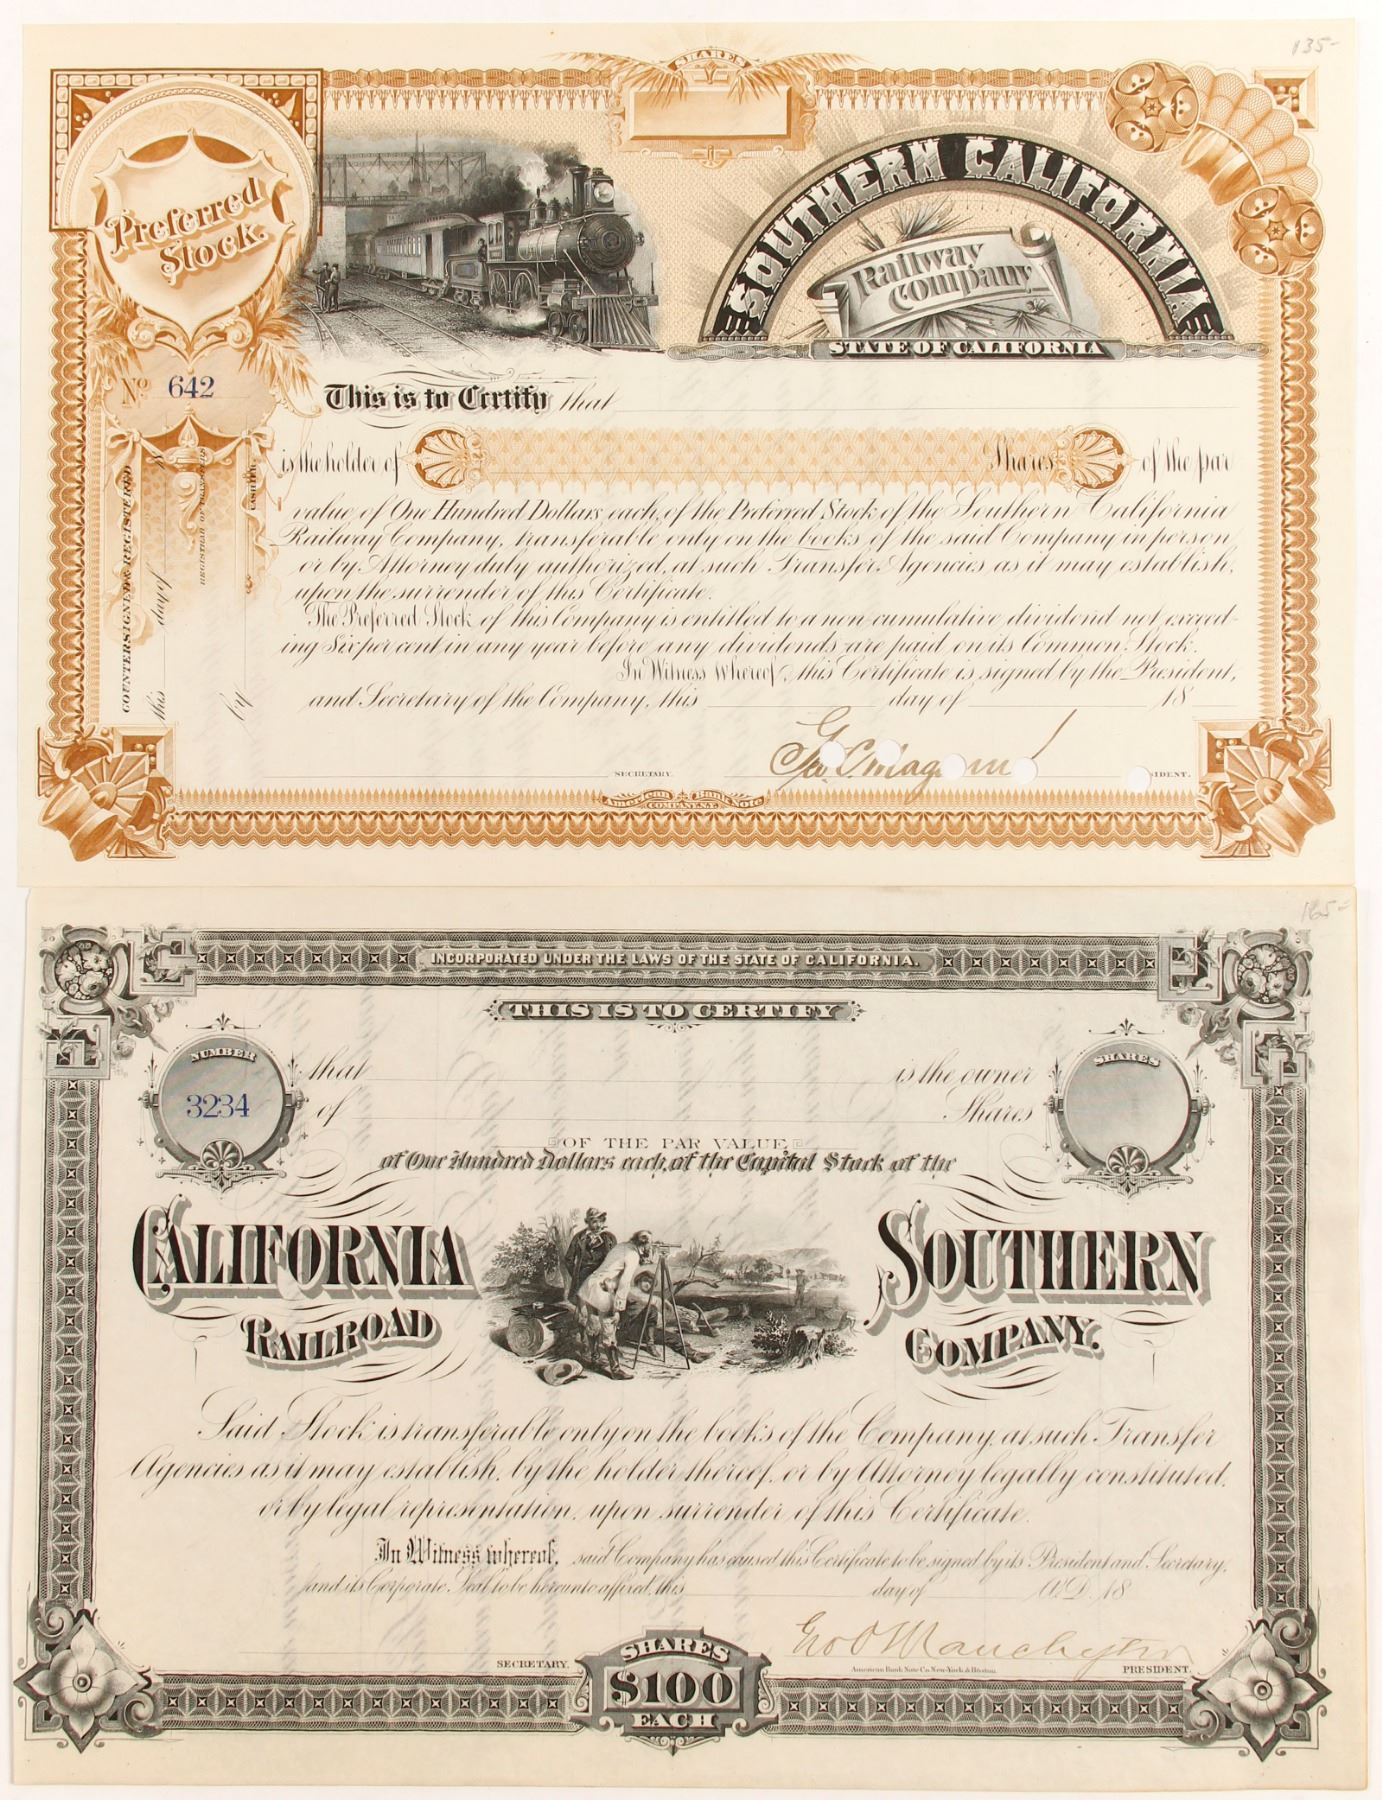 135-
SHARES
Preferred
Stock.
SOUTHERN CALIFORNIA
Railway
Company
STATE OF CALIFORNIA
No 642
This is to Certify that
is the holder of Shares of the par
value of One Hundred Dollars each, of the Preferred Stock of the Southern California
Railway Company, transferable only on the books of the said Company in person
or by Attorney duly authorized, at such Transfer Agencies as it may establish,
upon the surrender of this Certificate.
The Preferred Stock of this Company is entitled to a non-cumulative dividend not exceed-
ing Six per cent in any year before any dividends are paid on its Common Stock.
In Witness Whereof, this Certificate is signed by the President,
and Secretary of the Company, this day of 18
COUNTERSIGNED & REGISTERED
this day of 18
REGISTRAR OF TRANSFERS
by CASHIER
SECRETARY. Geo. C. Mag IDENT.
American Bank Note
COMPANY, N.Y.
165=
INCORPORATED UNDER THE LAWS OF THE STATE OF CALIFORNIA.
THIS IS TO CERTIFY
NUMBER
3234
SHARES
that is the owner
of Shares
OF THE PAR VALUE
of One Hundred Dollars each, of the Capital Stock of the
CALIFORNIA SOUTHERN
RAILROAD COMPANY.
Said Stock is transferable only on the books of the Company, at such Transfer
Agencies as it may establish, by the holder thereof, or by Attorney legally constituted,
or by legal representation, upon surrender of this Certificate.
In Witness whereof, said Company has caused this Certificate to be signed by its President and Secretary,
and its Corporate Seal to be hereunto affixed, this day of A.D. 18
Geo O Manchester
SECRETARY. American Bank Note Co. New-York & Boston. PRESIDENT.
SHARES
$100
EACH